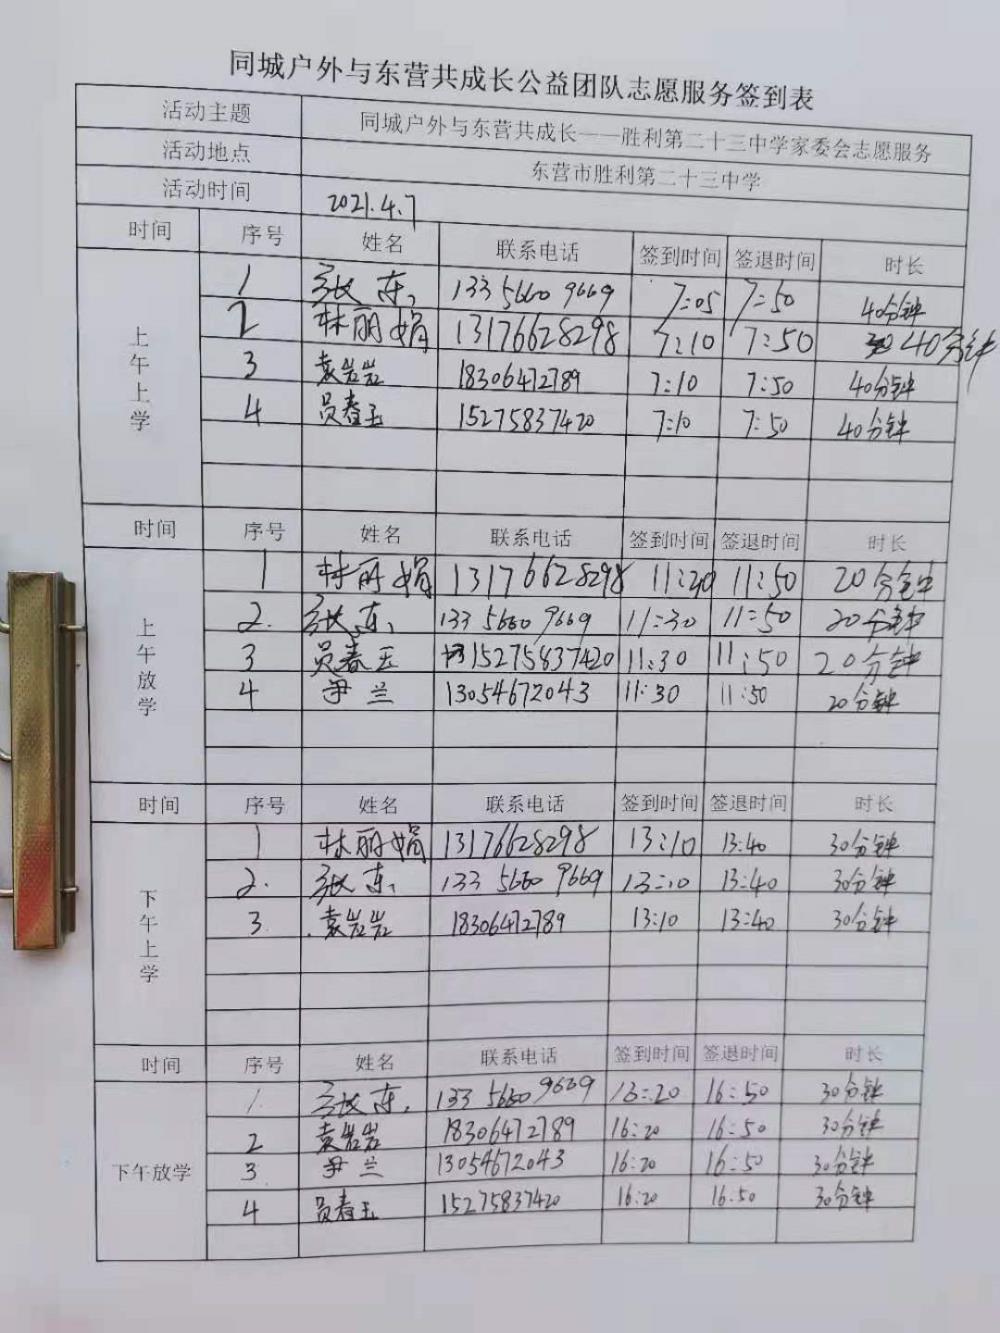 同城户外与东营共成长公益团队志愿服务签到表
活动主题 同城户外与东营共成长——胜利第二十三中学家委会志愿服务
活动地点 东营市胜利第二十三中学
活动时间 2021.4.7
时间 序号 姓名 联系电话 签到时间 签退时间 时长
上午上学
1 张东 13356609669 7:05 7:50 40分钟
2 林丽娟 13176628298 7:10 7:50 40分钟
3 袁岩岩 18306472789 7:10 7:50 40分钟
4 员春玉 15275837420 7:10 7:50 40分钟
时间 序号 姓名 联系电话 签到时间 签退时间 时长
上午放学
1 林丽娟 13176628298 11:20 11:50 20分钟
2. 张东 13356609669 11:30 11:50 20分钟
3 员春玉 15275837420 11:30 11:50 20分钟
4 尹兰 13054672043 11:30 11:50 20分钟
时间 序号 姓名 联系电话 签到时间 签退时间 时长
下午上学
1 林丽娟 13176628298 13:10 13:40 30分钟
2. 张东 13356609669 13:10 13:40 30分钟
3 袁岩岩 18306472789 13:10 13:40 30分钟
时间 序号 姓名 联系电话 签到时间 签退时间 时长
下午放学
1. 张东 13356609669 16:20 16:50 30分钟
2 袁岩岩 18306472789 16:20 16:50 30分钟
3 尹兰 13054672043 16:20 16:50 30分钟
4 员春玉 15275837420 16:20 16:50 30分钟